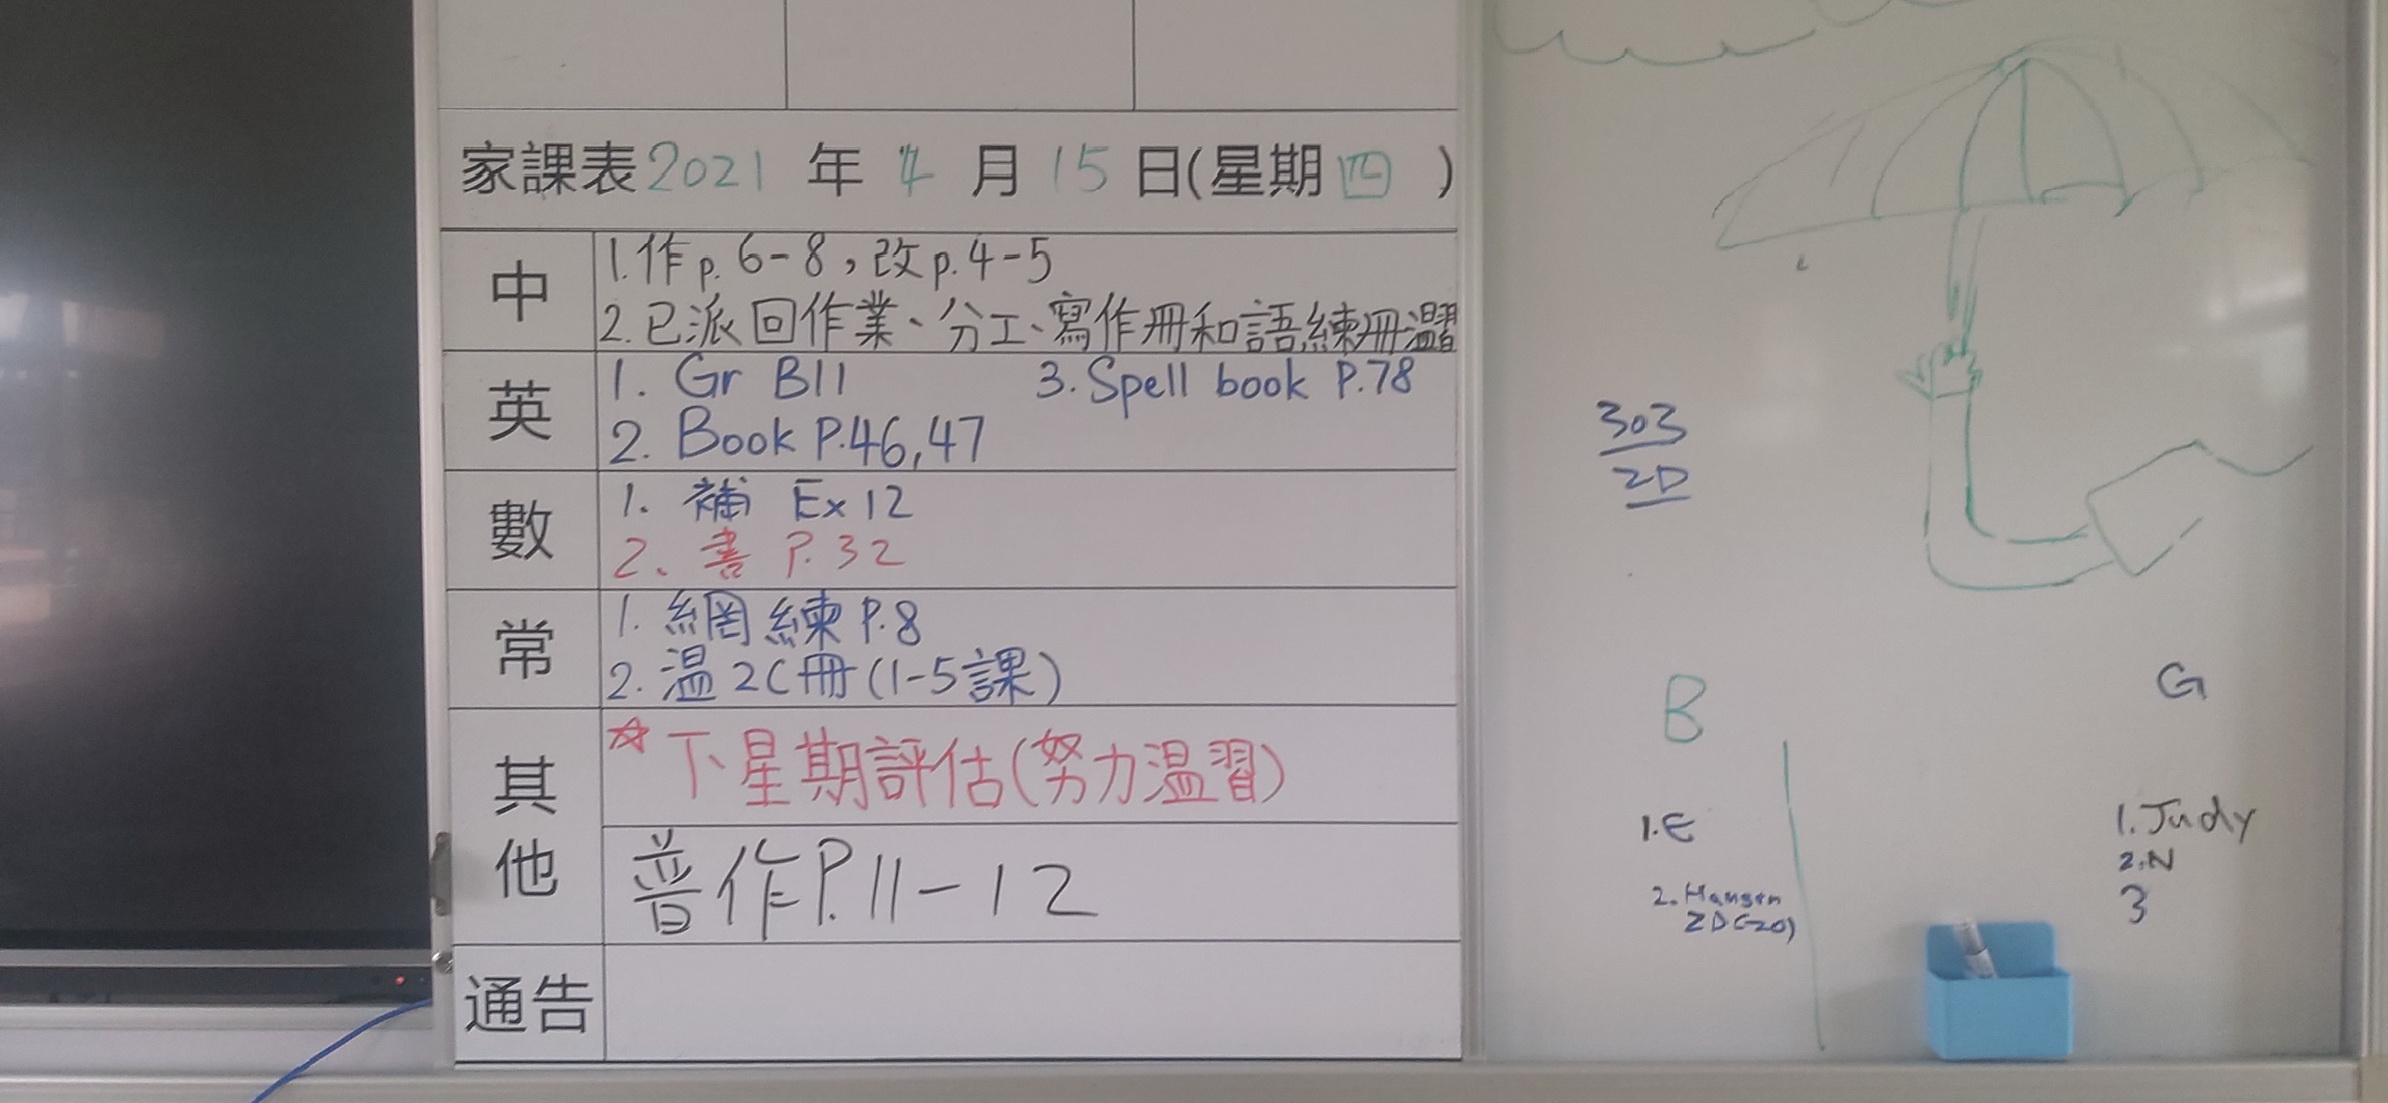 家課表2021年4月15日(星期四)
中
1.作p.6-8，改p.4-5
2.已派回作業、分工、寫作冊和語練冊溫習
英
1. Gr B11
3. Spell book P.78
2. Book P.46,47
數
1. 補 Ex 12
2. 書 P.32
常
1. 網練 P.8
2. 温2C冊(1-5課)
其他
☆下星期評估(努力温習)
普作P.11-12
通告
303
2D
B
G
1.E
2.
2D(20)
1.Judy
2.N
3